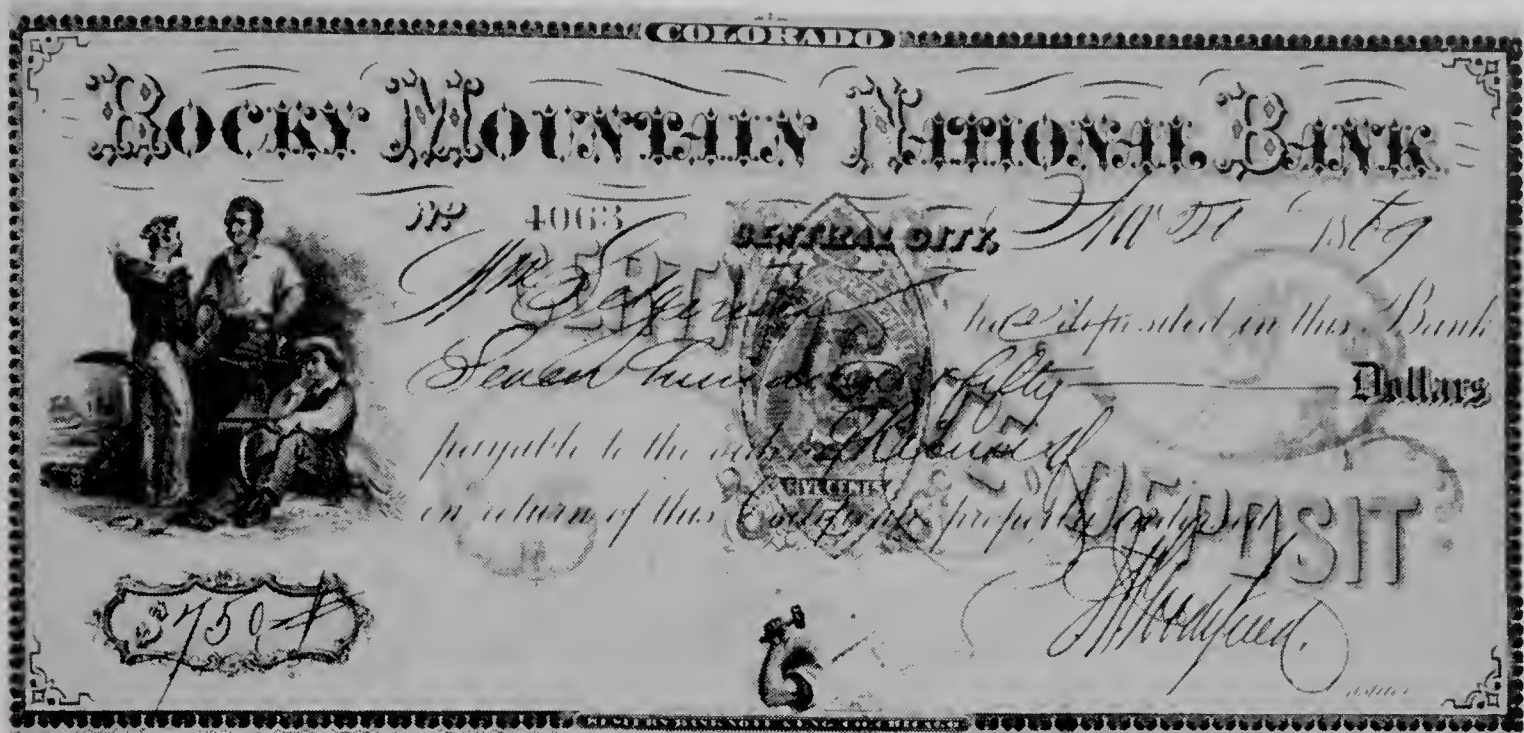 COLORADO
ROCKY MOUNTAIN NATIONAL BANK
No 4063 CENTRAL CITY, 1869
Wm has deposited in this Bank
Seven hundred & fifty Dollars
payable to the order of
in return of this Certificate properly endorsed
DEPOSIT
$750
WESTERN BANK NOTE & ENG. CO. CHICAGO